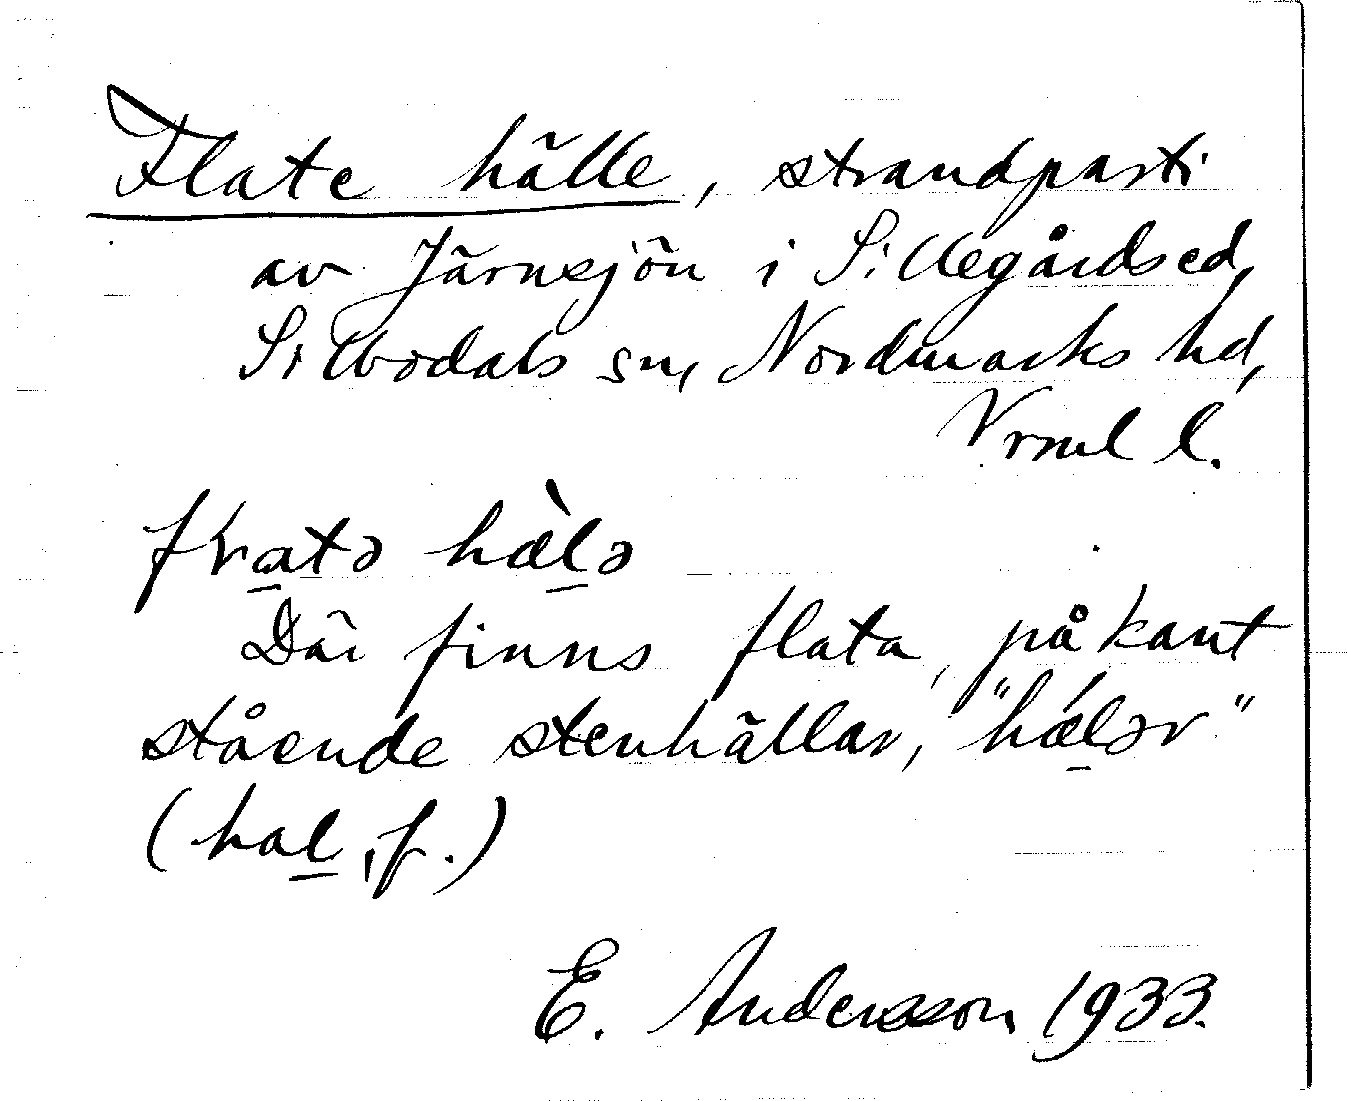 Flate hälle, strandparti
av Järnsjön i Sillegårdsed,
Silbodals sn, Nordmarks hd,
Vrml l.
fṟa̱tə hæ̀ḻə
Där finns flata, på kant
stående stenhällar, "hǽḻər"
(haḻ, f.)
E. Andersson 1933.